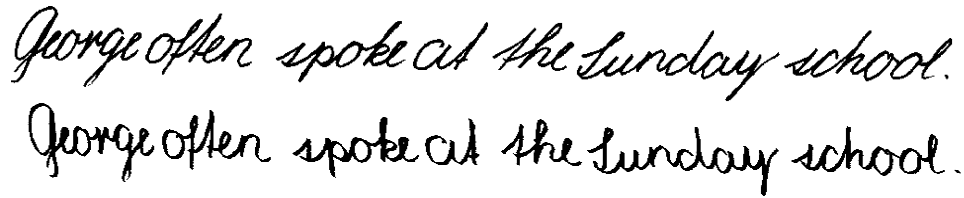 George often spoke at the Sunday school.
George often spoke at the Sunday school.